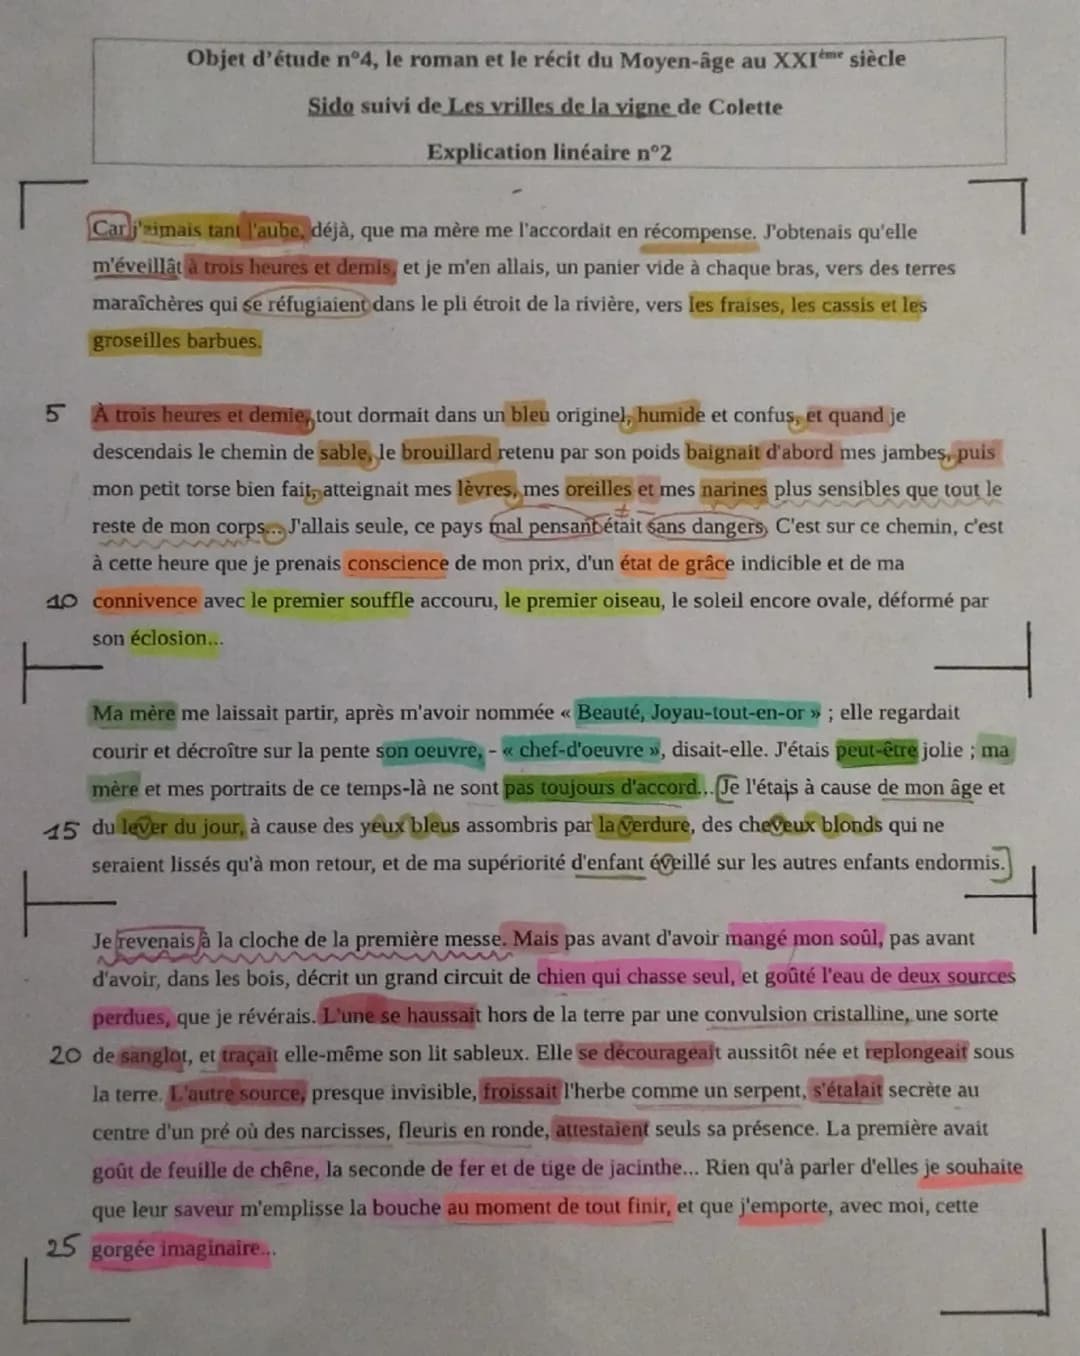 Objet d'étude n°4, le roman et le récit du Moyen-âge au XXIème siècle
Sido suivi de Les vrilles de la vigne de Colette
Explication linéaire n°2
Car j'aimais tant l'aube, déjà, que ma mère me l'accordait en récompense. J'obtenais qu'elle
m'éveillât à trois heures et demis, et je m'en allais, un panier vide à chaque bras, vers des terres
maraîchères qui se réfugiaient dans le pli étroit de la rivière, vers les fraises, les cassis et les
groseilles barbues.
5 À trois heures et demie, tout dormait dans un bleu originel, humide et confus, et quand je
descendais le chemin de sable, le brouillard retenu par son poids baignait d'abord mes jambes, puis
mon petit torse bien fait, atteignait mes lèvres, mes oreilles et mes narines plus sensibles que tout le
reste de mon corps... J'allais seule, ce pays mal pensant était sans dangers. C'est sur ce chemin, c'est
à cette heure que je prenais conscience de mon prix, d'un état de grâce indicible et de ma
10 connivence avec le premier souffle accouru, le premier oiseau, le soleil encore ovale, déformé par
son éclosion...
Ma mère me laissait partir, après m'avoir nommée « Beauté, Joyau-tout-en-or » ; elle regardait
courir et décroître sur la pente son oeuvre, - « chef-d'oeuvre », disait-elle. J'étais peut-être jolie ; ma
mère et mes portraits de ce temps-là ne sont pas toujours d'accord... Je l'étais à cause de mon âge et
15 du lever du jour, à cause des yeux bleus assombris par la verdure, des cheveux blonds qui ne
seraient lissés qu'à mon retour, et de ma supériorité d'enfant éveillé sur les autres enfants endormis.
Je revenais à la cloche de la première messe. Mais pas avant d'avoir mangé mon soûl, pas avant
d'avoir, dans les bois, décrit un grand circuit de chien qui chasse seul, et goûté l'eau de deux sources
perdues, que je révérais. L'une se haussait hors de la terre par une convulsion cristalline, une sorte
20 de sanglot, et traçait elle-même son lit sableux. Elle se décourageait aussitôt née et replongeait sous
la terre. L'autre source, presque invisible, froissait l'herbe comme un serpent, s'étalait secrète au
centre d'un pré où des narcisses, fleuris en ronde, attestaient seuls sa présence. La première avait
goût de feuille de chêne, la seconde de fer et de tige de jacinthe... Rien qu'à parler d'elles je souhaite
que leur saveur m'emplisse la bouche au moment de tout finir, et que j'emporte, avec moi, cette
25 gorgée imaginaire...